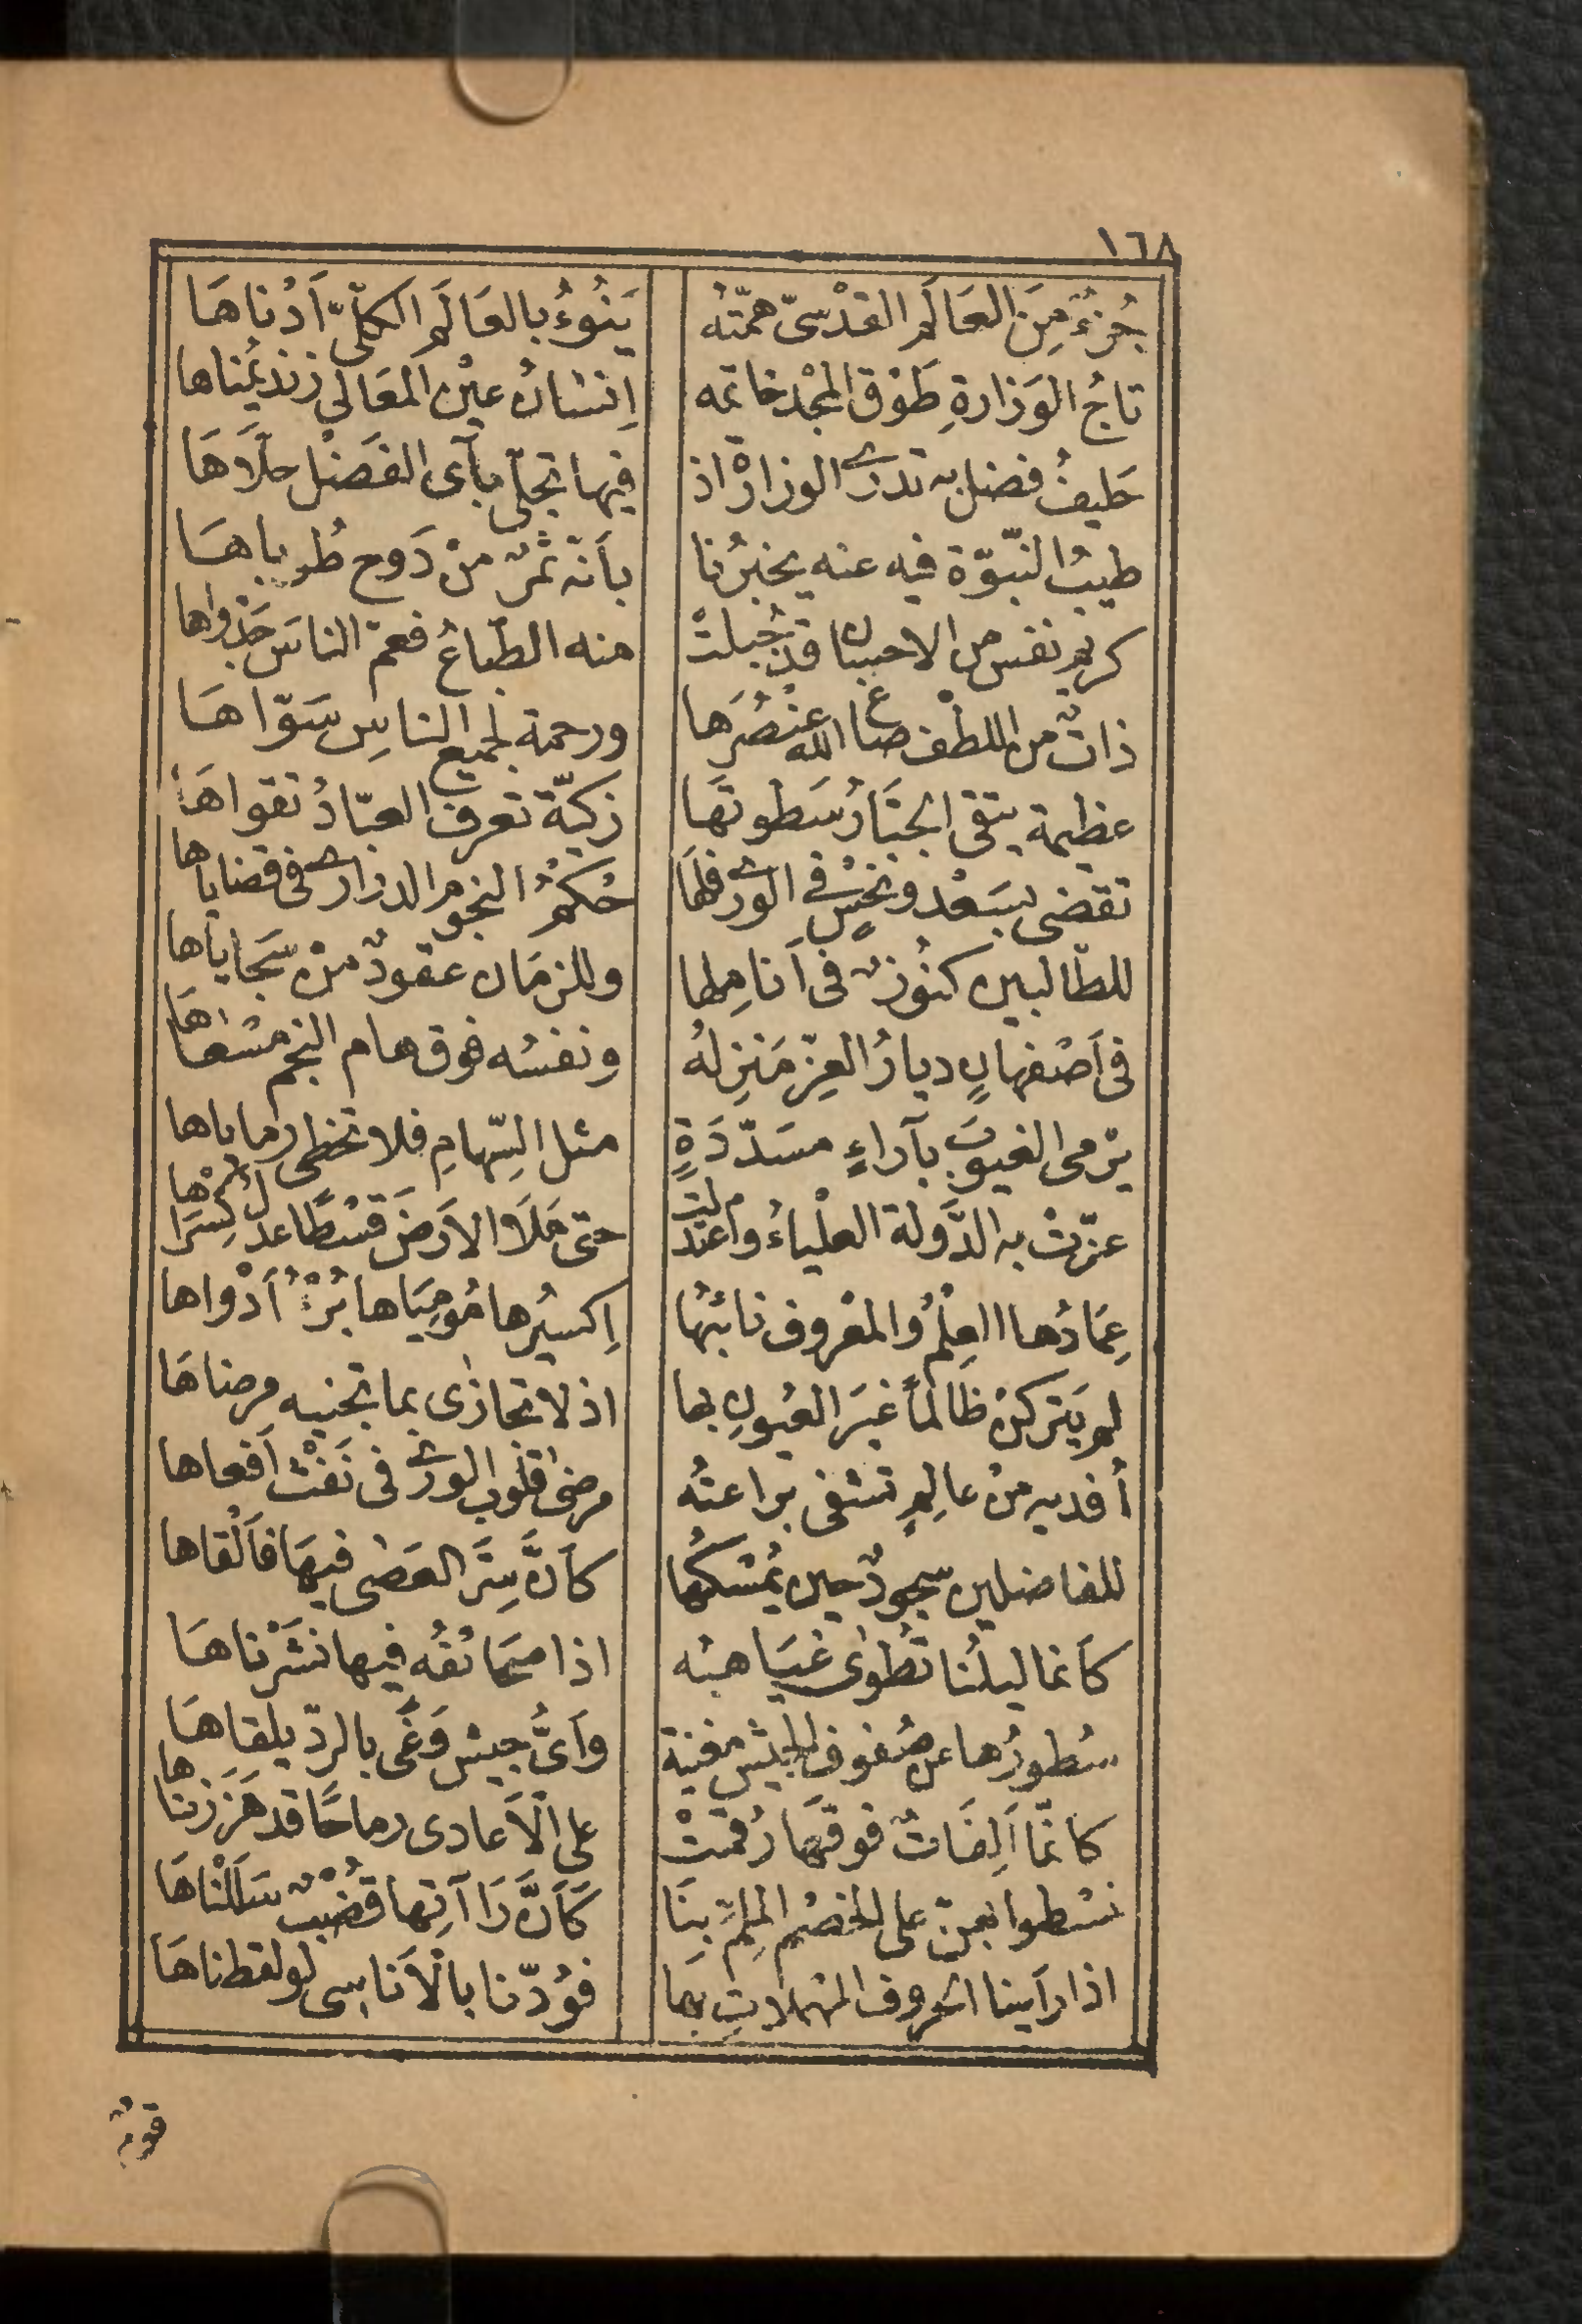 ١٦٨
جُزءٌ مِنَ العَالَم القدْسىّ همّتُه يَنُوءُ بالعَالَم الكلّىّ أَدْناهَا
تاجُ الوَزارةِ طَوْق المجْد خاتمه اِنسَانُ عيْن المعَالى زند يُمْناها
حَليفُ فضل به تدرى الوزارةْ اذ فيها تجلّى بآى الفَضْل حلَّاهَا
طيبُ النّبوّة فيه عنه يخبرُنا بأنّه ثمرٌ منْ دَوح طُوباهَا
كريم نفس من الاحسان قد جُبلتْ منه الطّباعُ فعمّ الناسَ جَدْواها
ذاتٌ من اللطْف صاغ الله عنْصُرَها ورحمة لجميع الناسِ سَوّاهَا
عظيمة يتقى الجبَّارُ سَطوتَهَا زكيّة تعرف العبّادُ تقواهَا
تقضى بسَعْد ونحْسٍ فى الورى فلهَا حُكْمُ النجوم الدرارى فى قضاياها
للطّالبين كنُوزٌ فى أنامِلها وللزمَان عقودٌ منْ سَجاياها
فى أصْفهانٍ ديارُ العِزّ مَنزِلهُ ونفسُه فوق هام النجم مسْعاهَا
يرْمى الغيوبَ بآراءٍ مسَدّدَةٍ مثل السّهامِ فلا تخطى رماياها
عزّتْ به الدَّولة العلْياءُ واعتدلت حتى مَلَا الارَضَ قسْطًا عدلُ كِسْرَاها
عِمَادُها العِلْمُ والمعْروف نائبُهَا اِكسيُرها مُومِيَاها بُرْءُ أَدْواها
لم يَتركنْ ظَالماً غيرَ العيُونِ بها اذ لا تجازٰى بما تجنيه مرضاهَا
أفديه منْ عالِمٍ تشفى براعتُه مرضىٰ قلُوب الورى فى نَفْث أفعاها
للفاضلين سجودٌ حين يُمْسكُها كأنَّ سِرَّ العَصٰى فيهَا فأَلْقاها
كأنما ليلُنا تُطوٰى غيَاهبُه اذا صحَائفُه فيها نشَرْناهَا
سُطورُها عن صُفوف الجيْش مغنية وأىُّ جيش وَغًى بالردّ يلقاهَا
كانّما ألِفاتٌ فوقَهَا رُقمتْ على الْأعادى رماحًا قد هَزَزنَاها
نسْطوا بهنّ على الخصْم المِلمّ بنَا كَأَنَّ رَاآتِها قُضْبٌ سَلَلْناهَا
اذا رأينا الحروف المهملاتِ بهَا فوُدّنا بالْأناسى لو لقطناهَا